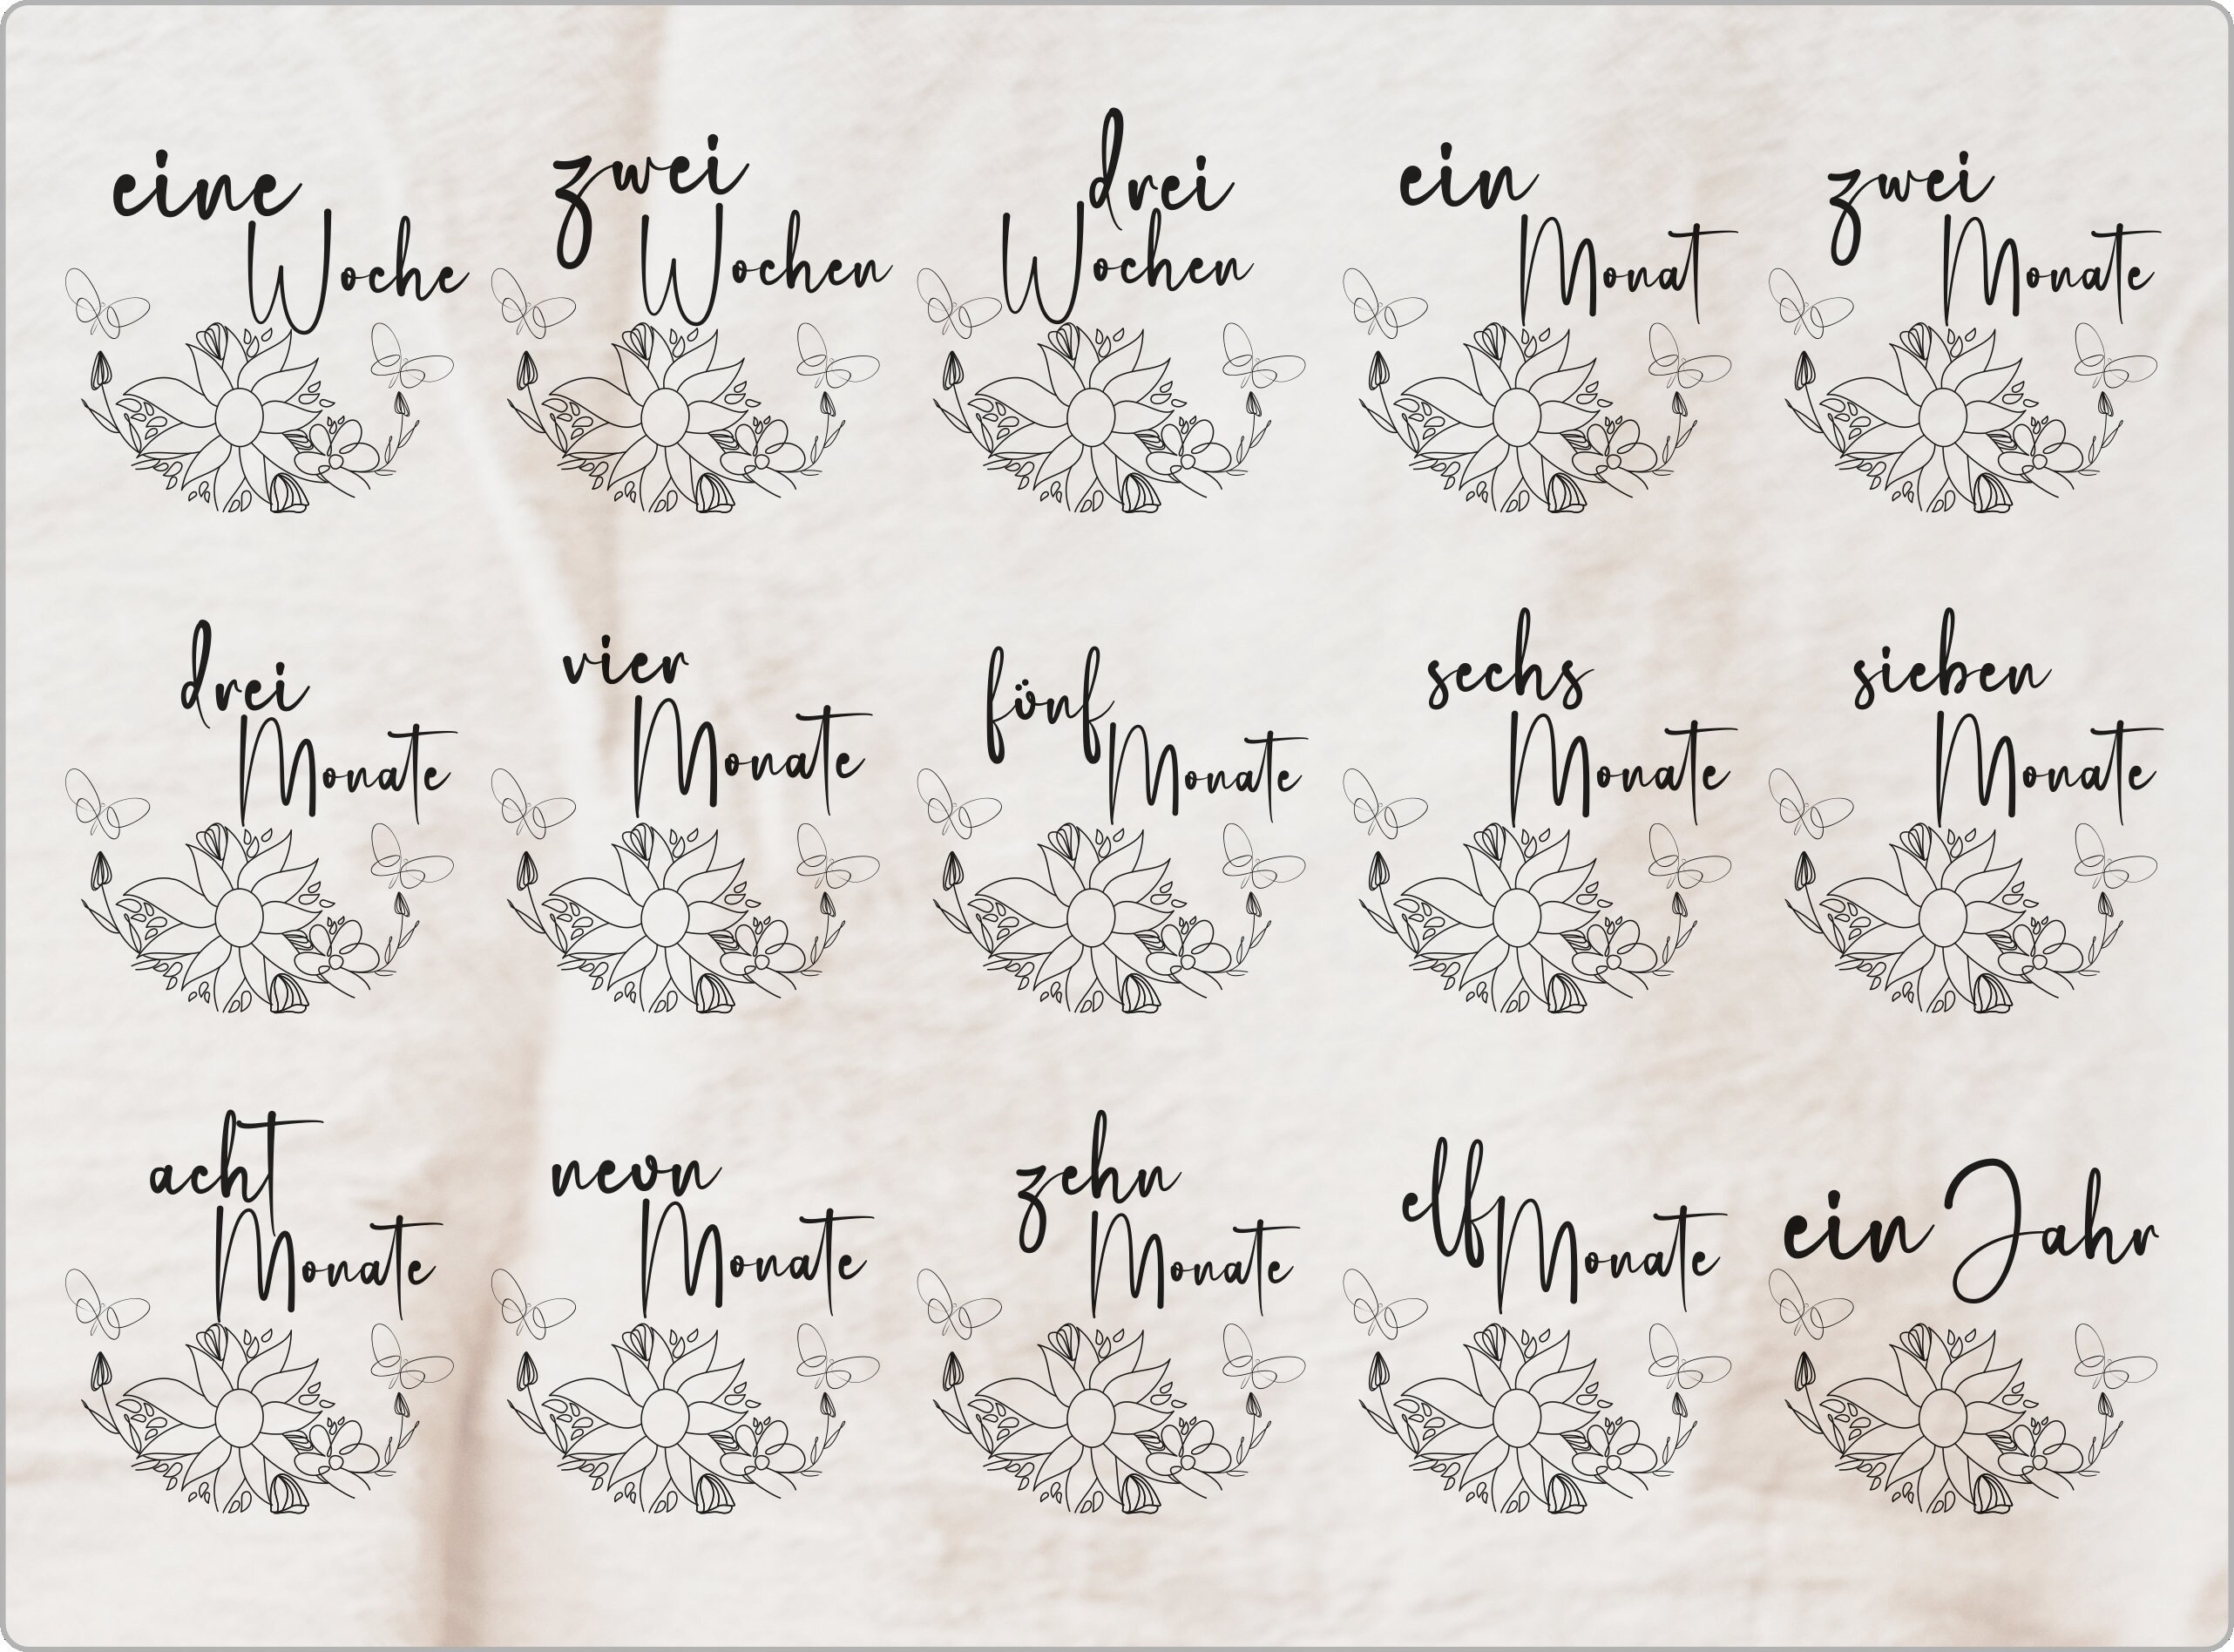 eine
Woche
zwei
Wochen
drei
Wochen
ein
Monat
zwei
Monate
drei
Monate
vier
Monate
fünf
Monate
sechs
Monate
sieben
Monate
acht
Monate
neun
Monate
zehn
Monate
elf Monate
ein Jahr